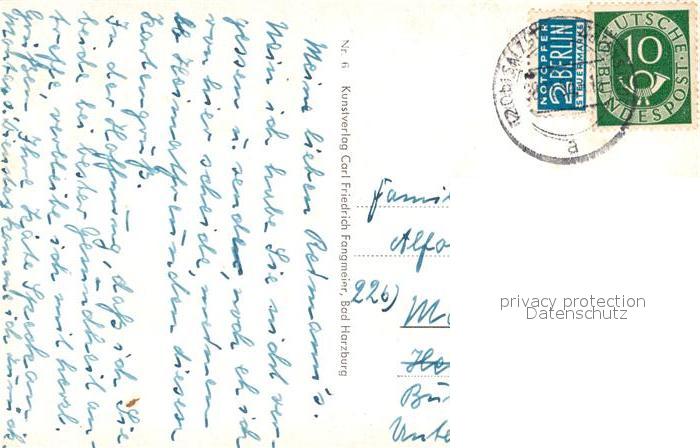 Meine lieben Redmann's.
Nein ich habe Sie nicht ver-
gessen u. sende noch eh ich
von hier scheide, meinen
lb. Heimatfreunden diesen
Kartengruß.
In der Hoffnung, daß ich Sie
beide bei bester Gesundheit an-
treffe verbleibe ich mit herzl.
Grüßen Ihre Käte
Dienstag komme ich
Nr. 6 Kunstverlag Carl Friedrich Fangmeier, Bad Harzburg
NOTOPFER
2 BERLIN
STEUERMARKE
DEUTSCHE
10
BUNDESPOST
Famil
Alfo
22b)
Bu
Unte
privacy protection
Datenschutz